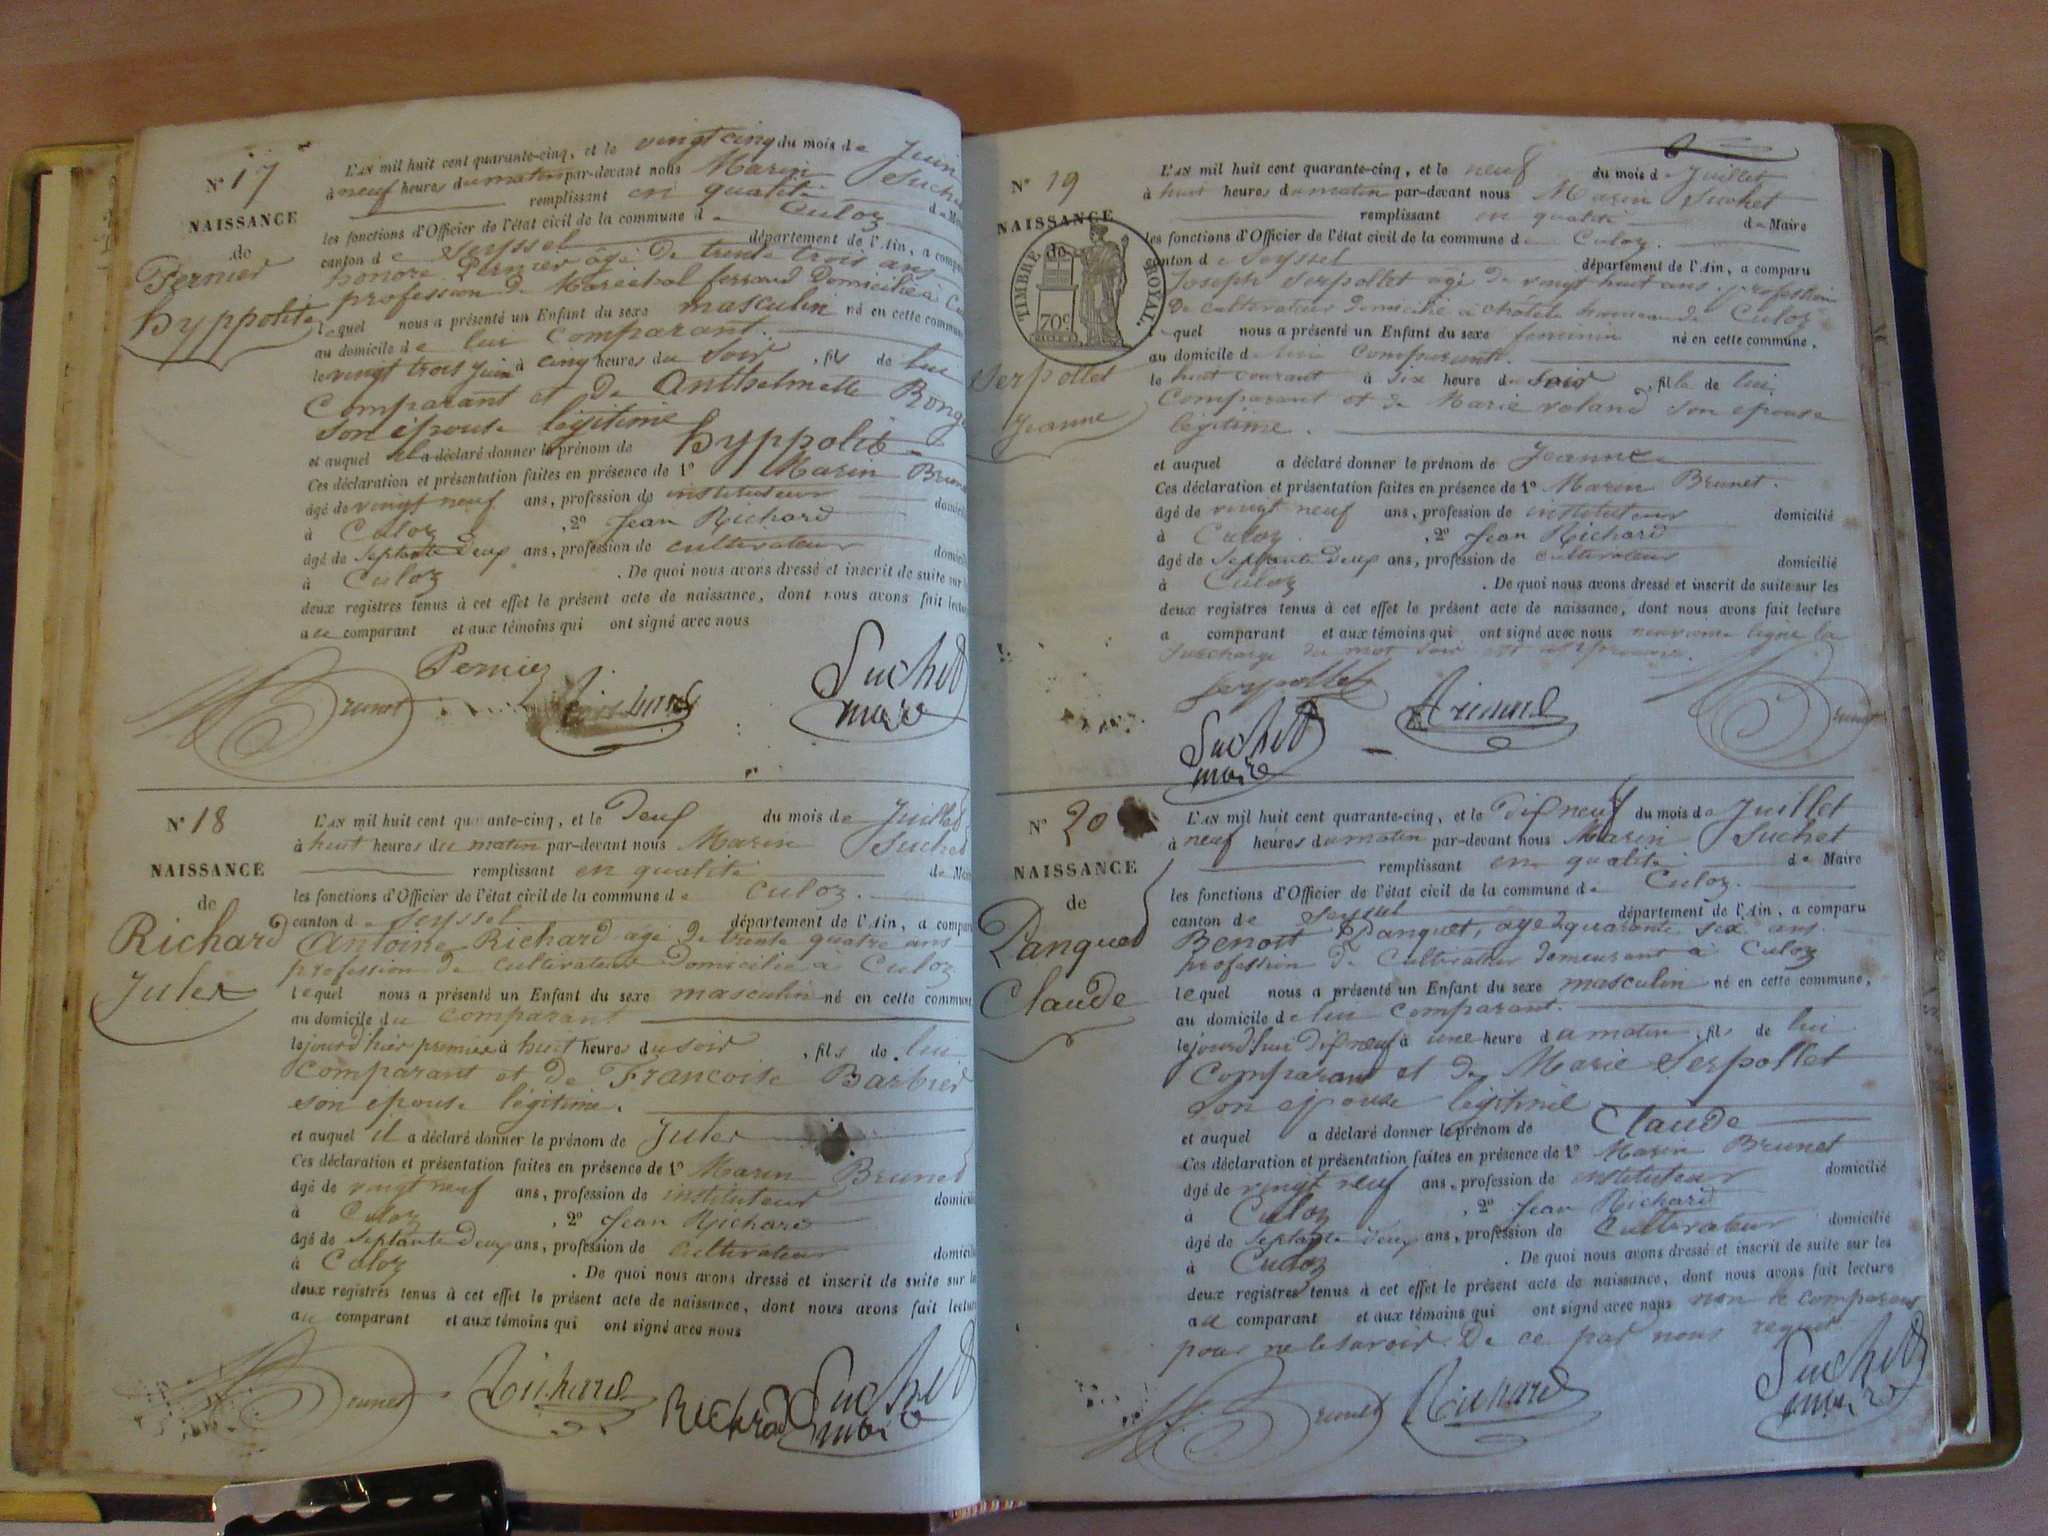 N° 17
NAISSANCE
de
Pernier
hyppolite
L'AN mil huit cent quarante-cinq, et le vingt cinq du mois de Juin
à neuf heures du matin par-devant nous Marin Suchet
remplissant en qualité de
les fonctions d'Officier de l'état civil de la commune de Culoz
canton de Seyssel département de l'Ain, a comparu
honoré Pernier âgé de trente trois ans
profession de Maréchal ferrand Domicilié à
lequel nous a présenté un Enfant du sexe masculin né en cette commune
au domicile de lui comparant.
le vingt trois Juin à cinq heures du Soir, fils de lui
Comparant et de Anthelmette
son épouse légitime
et auquel il a déclaré donner le prénom de hyppolite
Ces déclaration et présentation faites en présence de 1° Marin Brunet
âgé de vingt neuf ans, profession de instituteur
à Culoz, 2° Jean Richard
âgé de Septante Deux ans, profession de cultivateur
à Culoz. De quoi nous avons dressé et inscrit de suite sur
deux registres tenus à cet effet le présent acte de naissance, dont nous avons fait lecture
au comparant et aux témoins qui ont signé avec nous
Pernier
Brunet
Suchet
maire
N° 18
NAISSANCE
de
Richard
Jules
L'AN mil huit cent quarante-cinq, et le Deux du mois de Juillet
à huit heures du matin par-devant nous Marin Suchet
remplissant en qualité de
les fonctions d'Officier de l'état civil de la commune de Culoz.
canton de Seyssel département de l'Ain, a comparu
Antoine Richard agé de trente quatre ans
profession de cultivateur Domicilié à Culoz
lequel nous a présenté un Enfant du sexe masculin né en cette commune
au domicile du comparant
le jourd'hier premier à huit heures du soir, fils de lui
comparant et de Francoise Barbier
son épouse légitime.
et auquel il a déclaré donner le prénom de Jules
Ces déclaration et présentation faites en présence de 1° Marin Brunet
âgé de vingt neuf ans, profession de instituteur
à Culoz, 2° Jean Richard
âgé de Septante Deux ans, profession de cultivateur
à Culoz. De quoi nous avons dressé et inscrit de suite sur
deux registres tenus à cet effet le présent acte de naissance, dont nous avons fait lecture
au comparant et aux témoins qui ont signé avec nous
Brunet
Richard
Suchet
maire
N° 19
NAISSANCE
de
TIMBRE ROYAL.
70c
Serpollet
Jeanne
L'AN mil huit cent quarante-cinq, et le neuf du mois de Juillet
à huit heures du matin par-devant nous Marin Suchet
remplissant en qualité de Maire
les fonctions d'Officier de l'état civil de la commune de Culoz.
canton de Seyssel département de l'Ain, a comparu
Joseph Serpollet agé de vingt huit ans profession
De cultivateur domicilié à hameau de Culoz
lequel nous a présenté un Enfant du sexe feminin né en cette commune.
au domicile de lui Comparant.
le huit courant à six heure du soir, fille de lui
Comparant et de Marie roland son épouse
légitime.
et auquel a déclaré donner le prénom de Jeanne
Ces déclaration et présentation faites en présence de 1° Marin Brunet.
âgé de vingt neuf ans, profession de instituteur domicilié
à Culoz, 2° Jean Richard
âgé de Septante Deux ans, profession de cultivateur domicilié
à Culoz. De quoi nous avons dressé et inscrit de suite sur les
deux registres tenus à cet effet le présent acte de naissance, dont nous avons fait lecture
a comparant et aux témoins qui ont signé avec nous neuvieme ligne la
Surcharge du mot soir est
Serpollet
Suchet
maire
Brunet
N° 20
NAISSANCE
de
Panquet
Claude
L'AN mil huit cent quarante-cinq, et le Dix neuf du mois de Juillet
à neuf heures du matin par-devant nous Marin Suchet
remplissant en qualité de Maire
les fonctions d'Officier de l'état civil de la commune de Culoz.
canton de Seyssel département de l'Ain, a comparu
Benoit Panquet, age quarante six ans.
profession de Cultivateur demeurant à Culoz
lequel nous a présenté un Enfant du sexe masculin né en cette commune,
au domicile de lui comparant.
le jourd'hui Dix neuf à une heure du matin, fils de lui
Comparant et de Marie Serpollet
son epouse légitime
et auquel a déclaré donner le prénom de Claude
Ces déclaration et présentation faites en présence de 1° Marin Brunet
âgé de vingt neuf ans, profession de instituteur domicilié
à Culoz, 2° Jean Richard
âgé de Septante Deux ans, profession de Cultivateur domicilié
à Culoz. De quoi nous avons dressé et inscrit de suite sur les
deux registres tenus à cet effet le présent acte de naissance, dont nous avons fait lecture
au comparant et aux témoins qui ont signé avec nous non le comparant
pour ne le savoir De ce par nous requis
Brunet
Richard
Suchet
maire